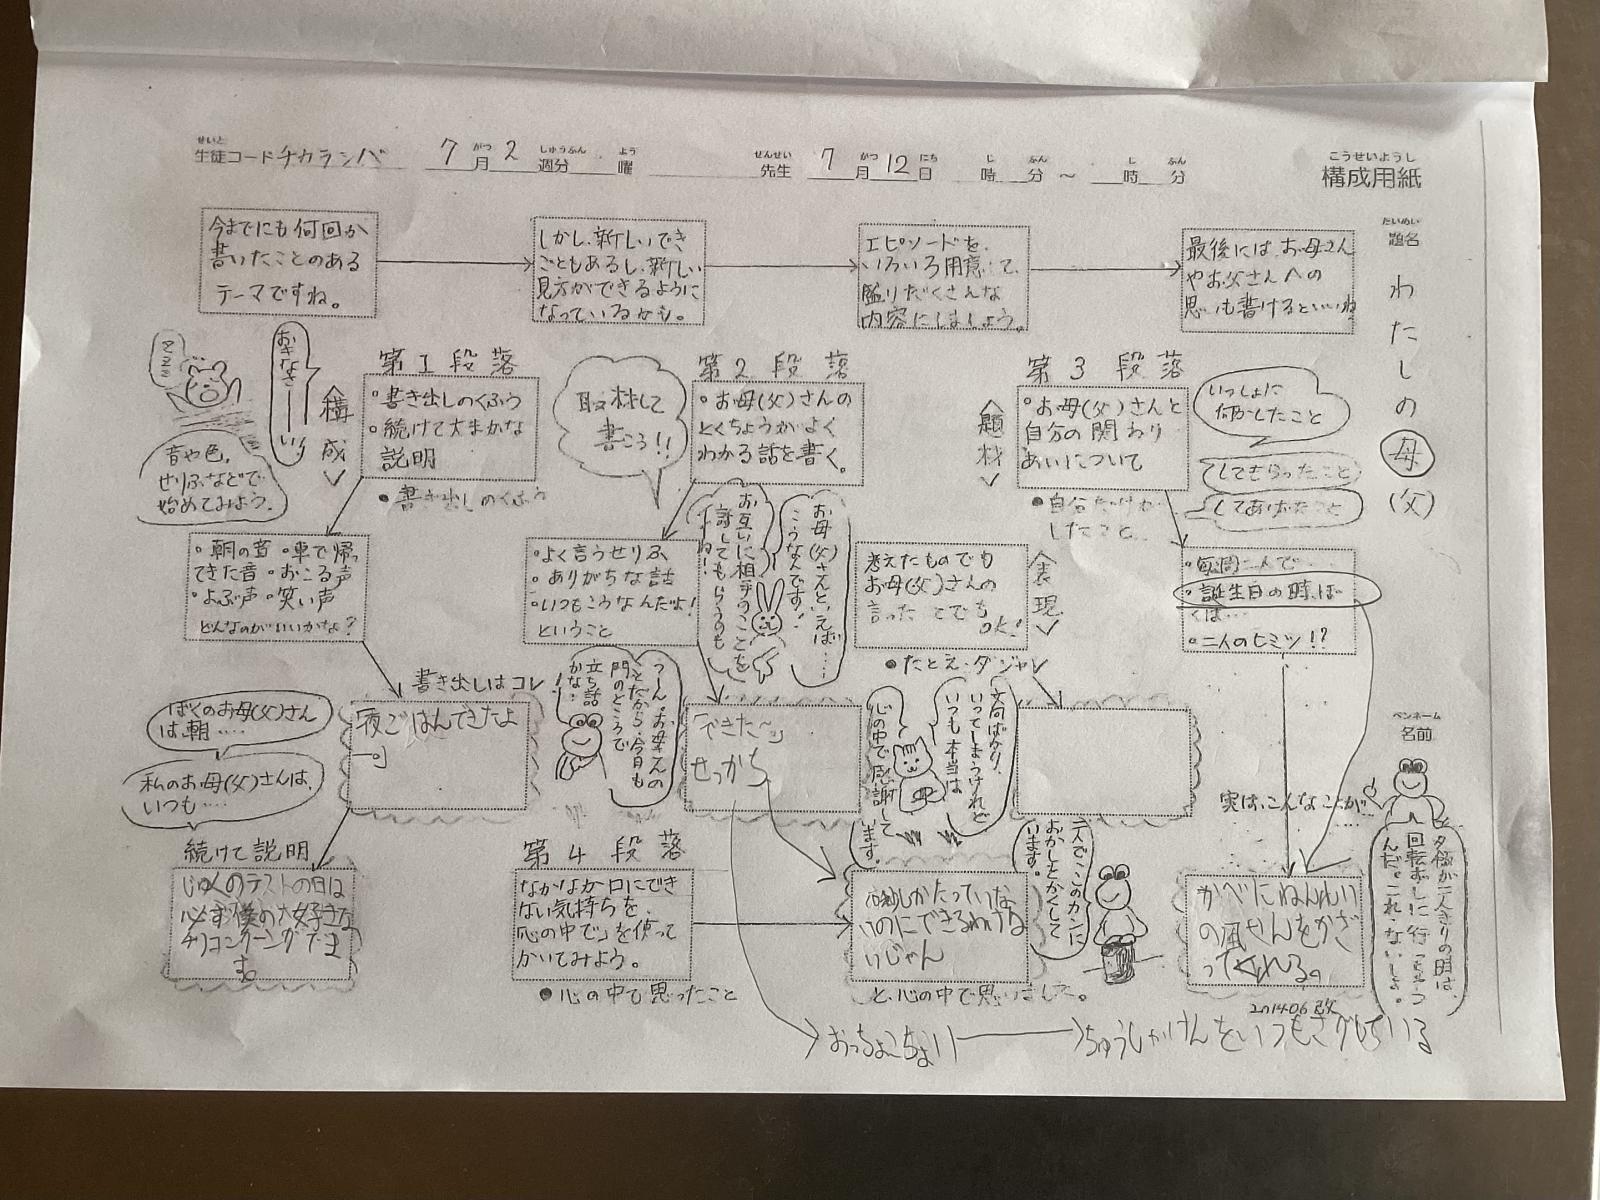 生徒コード チカラシバ 7月2週分 曜 先生 7月12日 時 分 ～ 時 分
構成用紙
題名 わたしの母(父)
今までにも何回か
書いたことのある
テーマですね。
しかし、新しいでき
ごともあるし、新しい
見方ができるように
なっているかも。
エピソードを、
いろいろ用意して、
盛りだくさんな
内容にしましょう。
最後にはお母さん
やお父さんへの
思いも書けるといいね
おきなさーーい!
<構成>
音や色、
せりふなどで
始めてみよう。
第1段落
・書き出しのくふう
・続けて大まかな
説明
●書き出しのくふう
取材して
書こう!!
第2段落
・お母(父)さんの
とくちょうが よく
わかる話を書く。
<題材>
第3段落
・お母(父)さんと
自分の関わり
あいについて
いっしょに
何かしたこと
してもらったこと
してあげたこと
●自分だけが
したこと
・朝の音 ・車で帰っ
てきた音 ・おこる声
・よぶ声 ・笑い声
どんなのがいいかな?
・よく言うせりふ
・ありがちな話
・いつもこうなんだよ!
ということ
お互いに相手のことを
話してもらうのも
いいね!
お母(父)さんといえば……
こうなんです!
考えたものでも
お母(父)さんの
言った ことでも
OK!
<表現>
●たとえ・ダジャレ
・毎週二人で…
・誕生日の時、ぼ
くは…
・二人のヒミツ!?
書き出しはコレ
ぼくのお母(父)さん
は、朝……
私のお母(父)さんは、
いつも……
「夜ごはんできたよ
ー。」
うーん。お母さんの
ことだから、今日も
門のところで
立ち話
かな…
「できた〜」
せっかち
文句ばかり、
いってしまうけれど
いつも本当は
心の中で感謝して
います。
ペンネーム
名前
実は、こんなことが…
夕飯が二人きりの時は、
回転ずしに行っちゃう
んだ。これ、ないしょ。
続けて説明
じゅくのテストの日は
必ず僕の大好きな
チリコンクーングでま
す。
第4段落
なかなか口にでき
ない気持ちを、
「心の中で」を使って
かいてみよう。
●心の中で思ったこと
しかたっていな
いのにできるわけな
いじゃん
と、心の中で思いました。
二人でこのカンに
おかしをかくして
います。
かべにねんれい
の風せんをかざ
ってくれる。
2014.06改
おっちょこちょい
ちゅうしゃけんをいつもさがしている